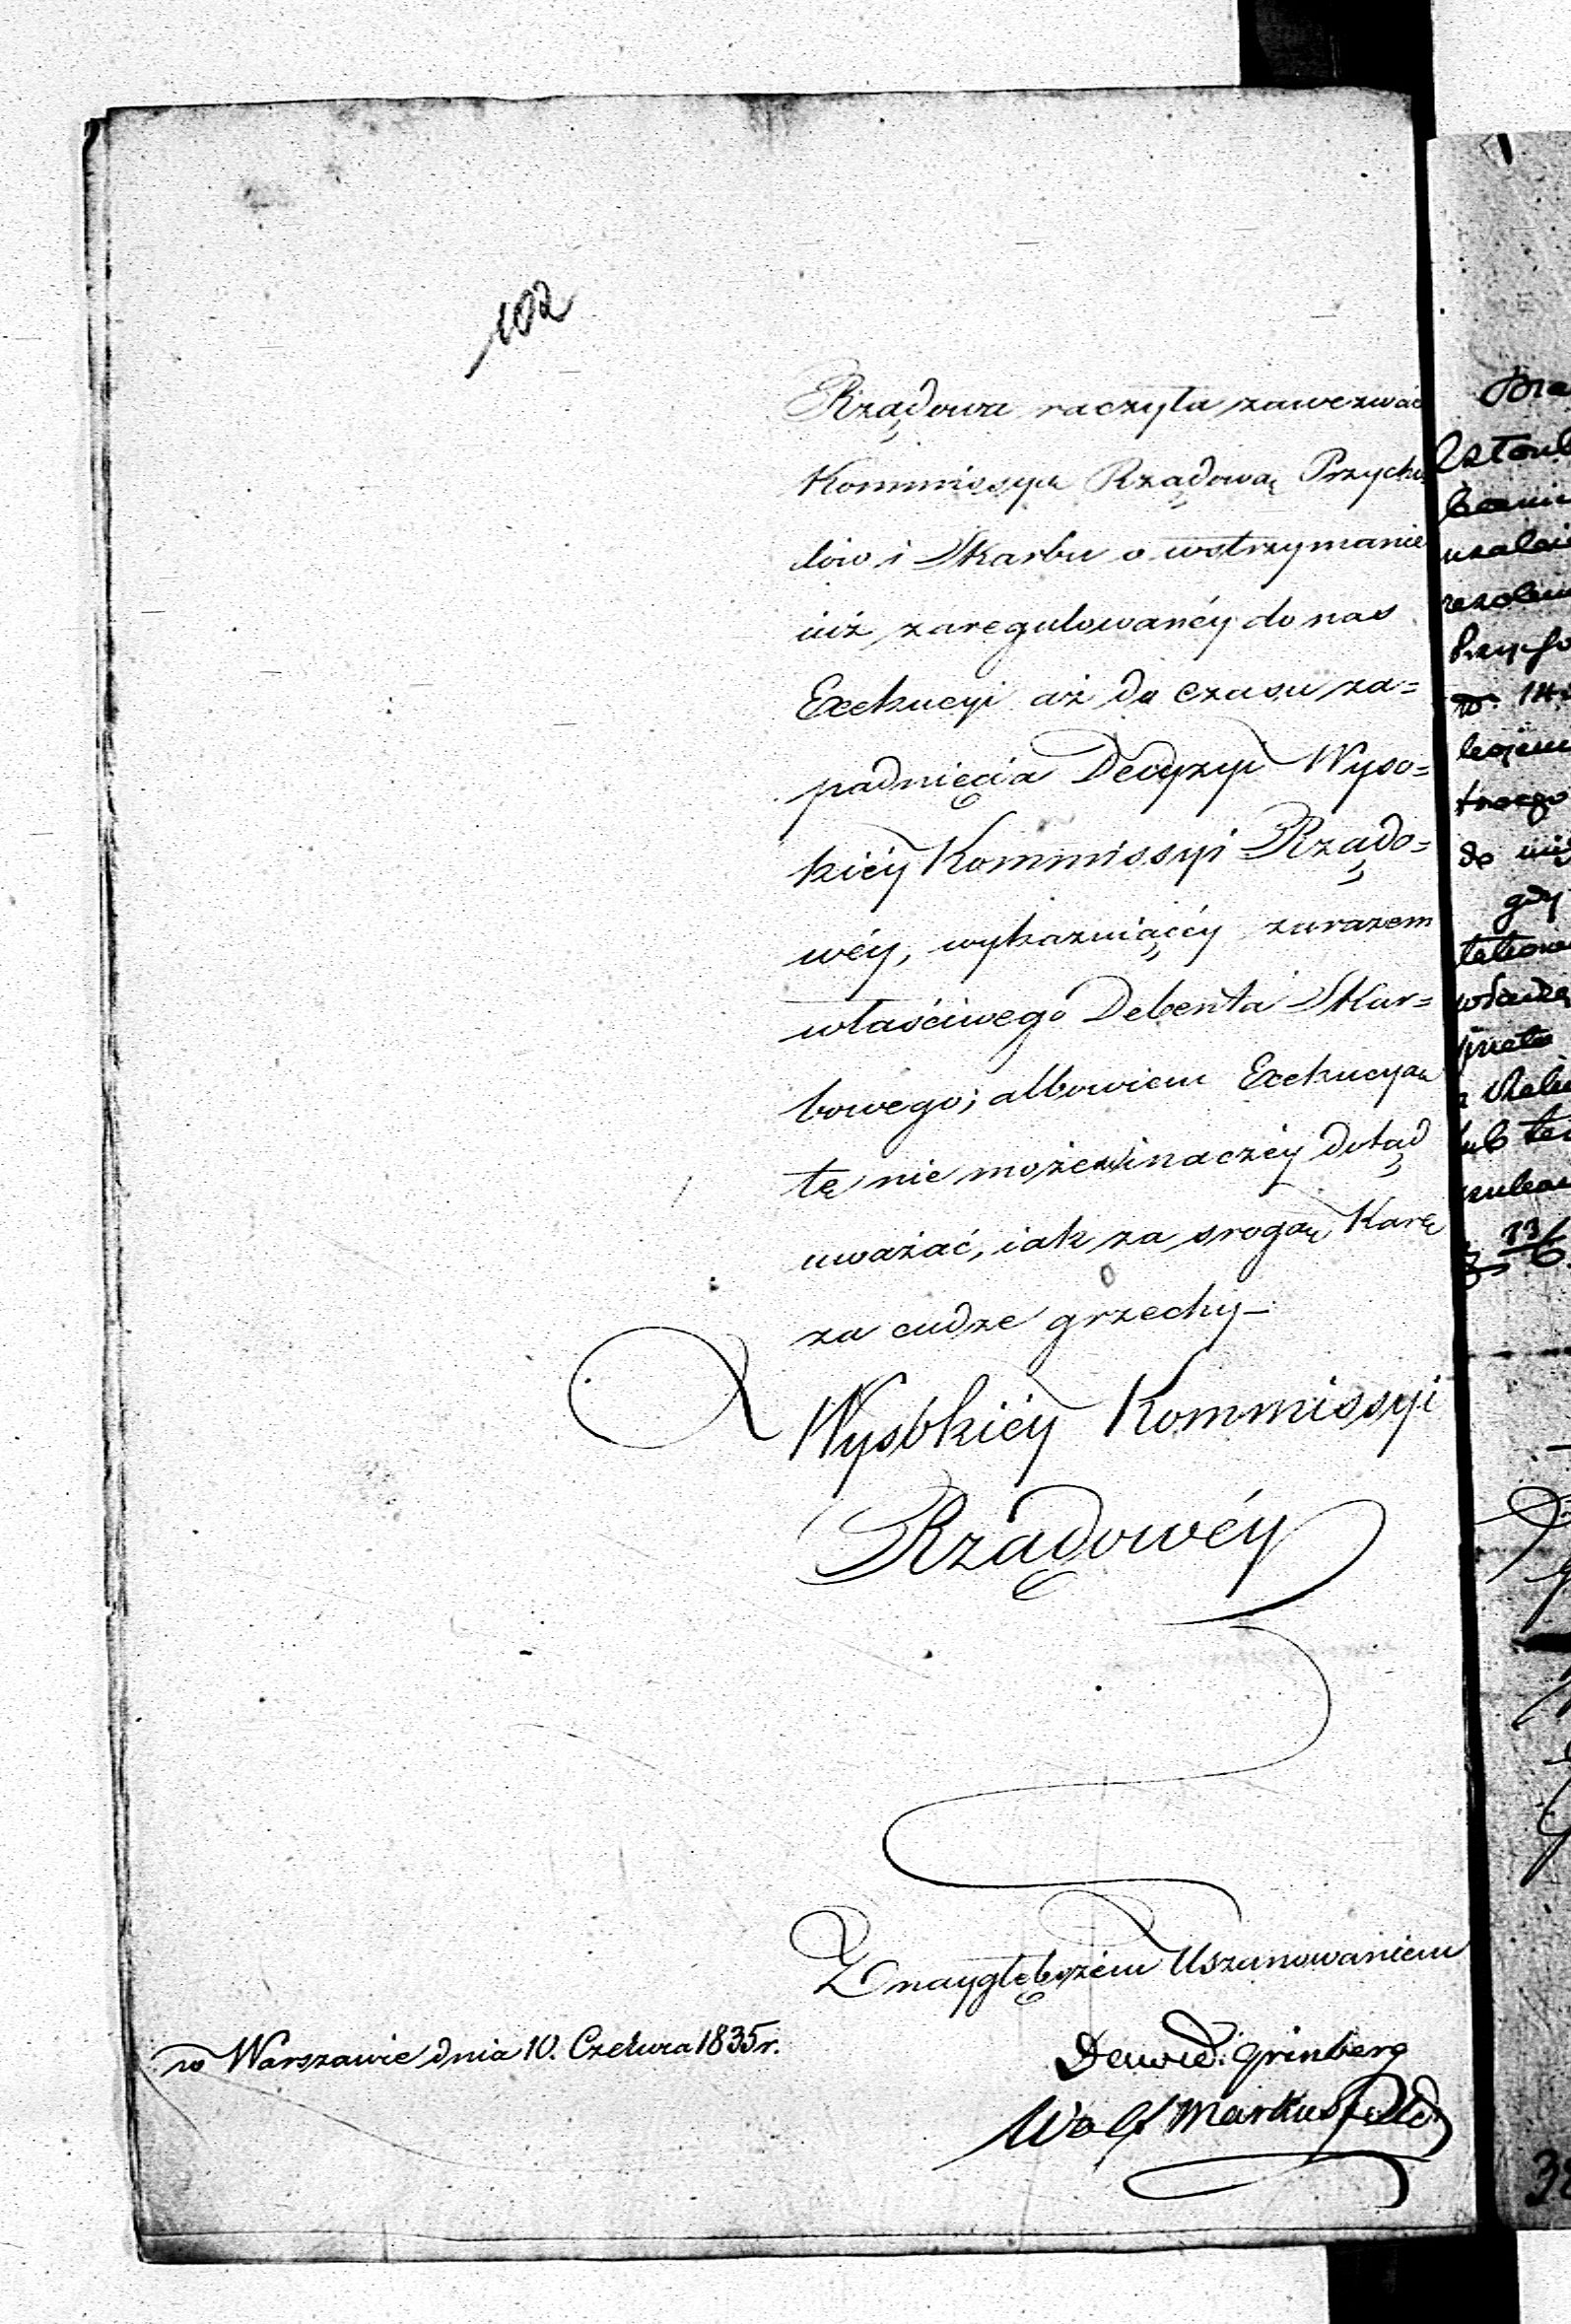 102
Rządowa raczyła zawezwać
Kommissyą Rządową Przycho
dów i Skarbu o wstrzymanie
iuż zaregulowanéy do nas
Exekucyi aż do czasu za=
padnięcia Decyzyi Wyso=
kiéy Kommissyi Rządo=
wéy, wykazuiącéy zarazem
właściwego Debenta Skar=
bowego; albowiem Exekucyą
tę nie możem inaczéy dotąd
uważać, iak za srogą Karę
za cudze grzechy—
Wysokiéy Kommissyi
Rządowéy
Z naygłębszém Uszanowaniem
w Warszawie dnia 10. Czerwca 1835 r.
Dawid Grinberg
Wolf Markusfeld
gdy